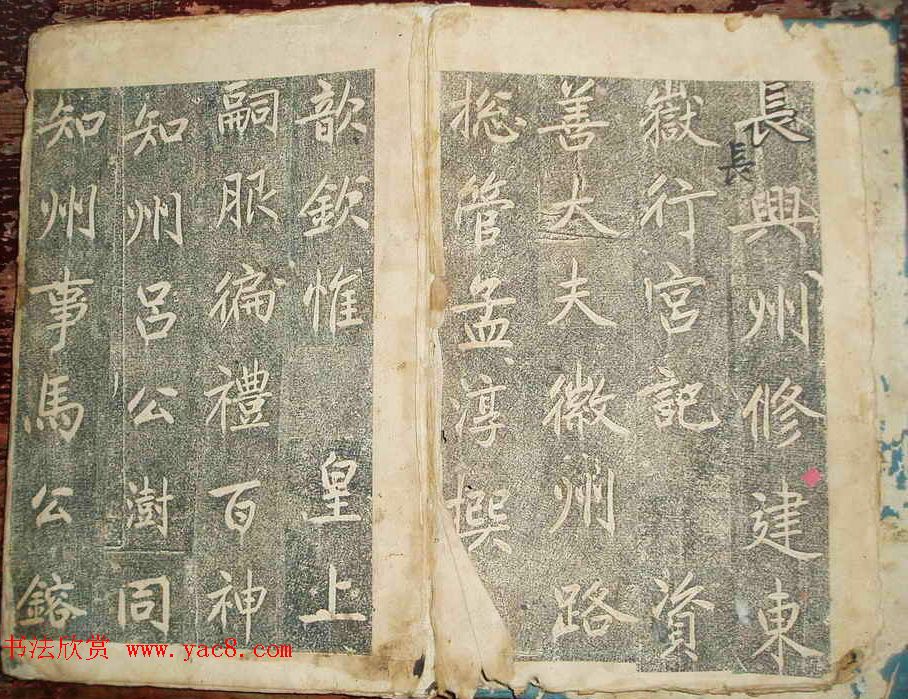 長興州修建東
長
嶽行宮記資
善大夫徽州路
捴管孟淳撰
歆欽惟皇上
嗣服徧禮百神
知州呂公澍同
知州事馬公鎔
书法欣赏 www.yac8.com